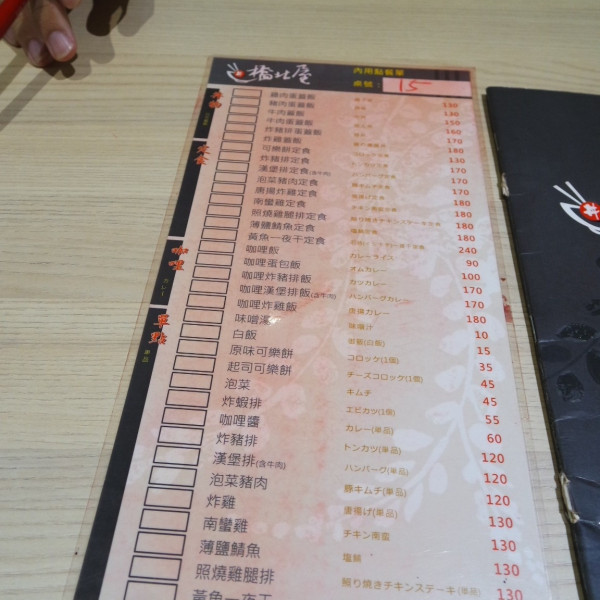 橋北屋
內用點餐單
桌號 15
雞肉蛋蓋飯 130
豬肉蛋蓋飯 130
牛肉蓋飯 150
牛肉蛋蓋飯 160
炸豬排蛋蓋飯 170
炸雞蓋飯 180
定食
可樂餅定食 130
炸豬排定食 170
漢堡排定食(含牛肉) 170
泡菜豬肉定食 170
唐揚炸雞定食 180
南蠻雞定食 180
照燒雞腿排定食 180
薄鹽鯖魚定食 180
黃魚一夜干定食 240
咖哩 カレー
咖哩飯 カレーライス 90
咖哩蛋包飯 オムカレー 100
咖哩炸豬排飯 カツカレー 170
咖哩漢堡排飯(含牛肉) ハンバーグカレー 170
咖哩炸雞飯 唐揚カレー 180
單點 單品
味噌湯 味噌汁 10
白飯 15
原味可樂餅 コロック(1個) 35
起司可樂餅 チーズコロック(1個) 45
泡菜 キムチ 45
炸蝦排 エビカツ(1個) 55
咖哩醬 カレー(単品) 60
炸豬排 トンカツ(単品) 120
漢堡排(含牛肉) ハンバーグ(単品) 120
泡菜豬肉 豚キムチ(単品) 120
炸雞 唐揚げ(単品) 130
南蠻雞 チキン南蛮 130
薄鹽鯖魚 塩鯖 130
照燒雞腿排 照り焼きチキンステーキ(単品) 130
黃魚一夜干